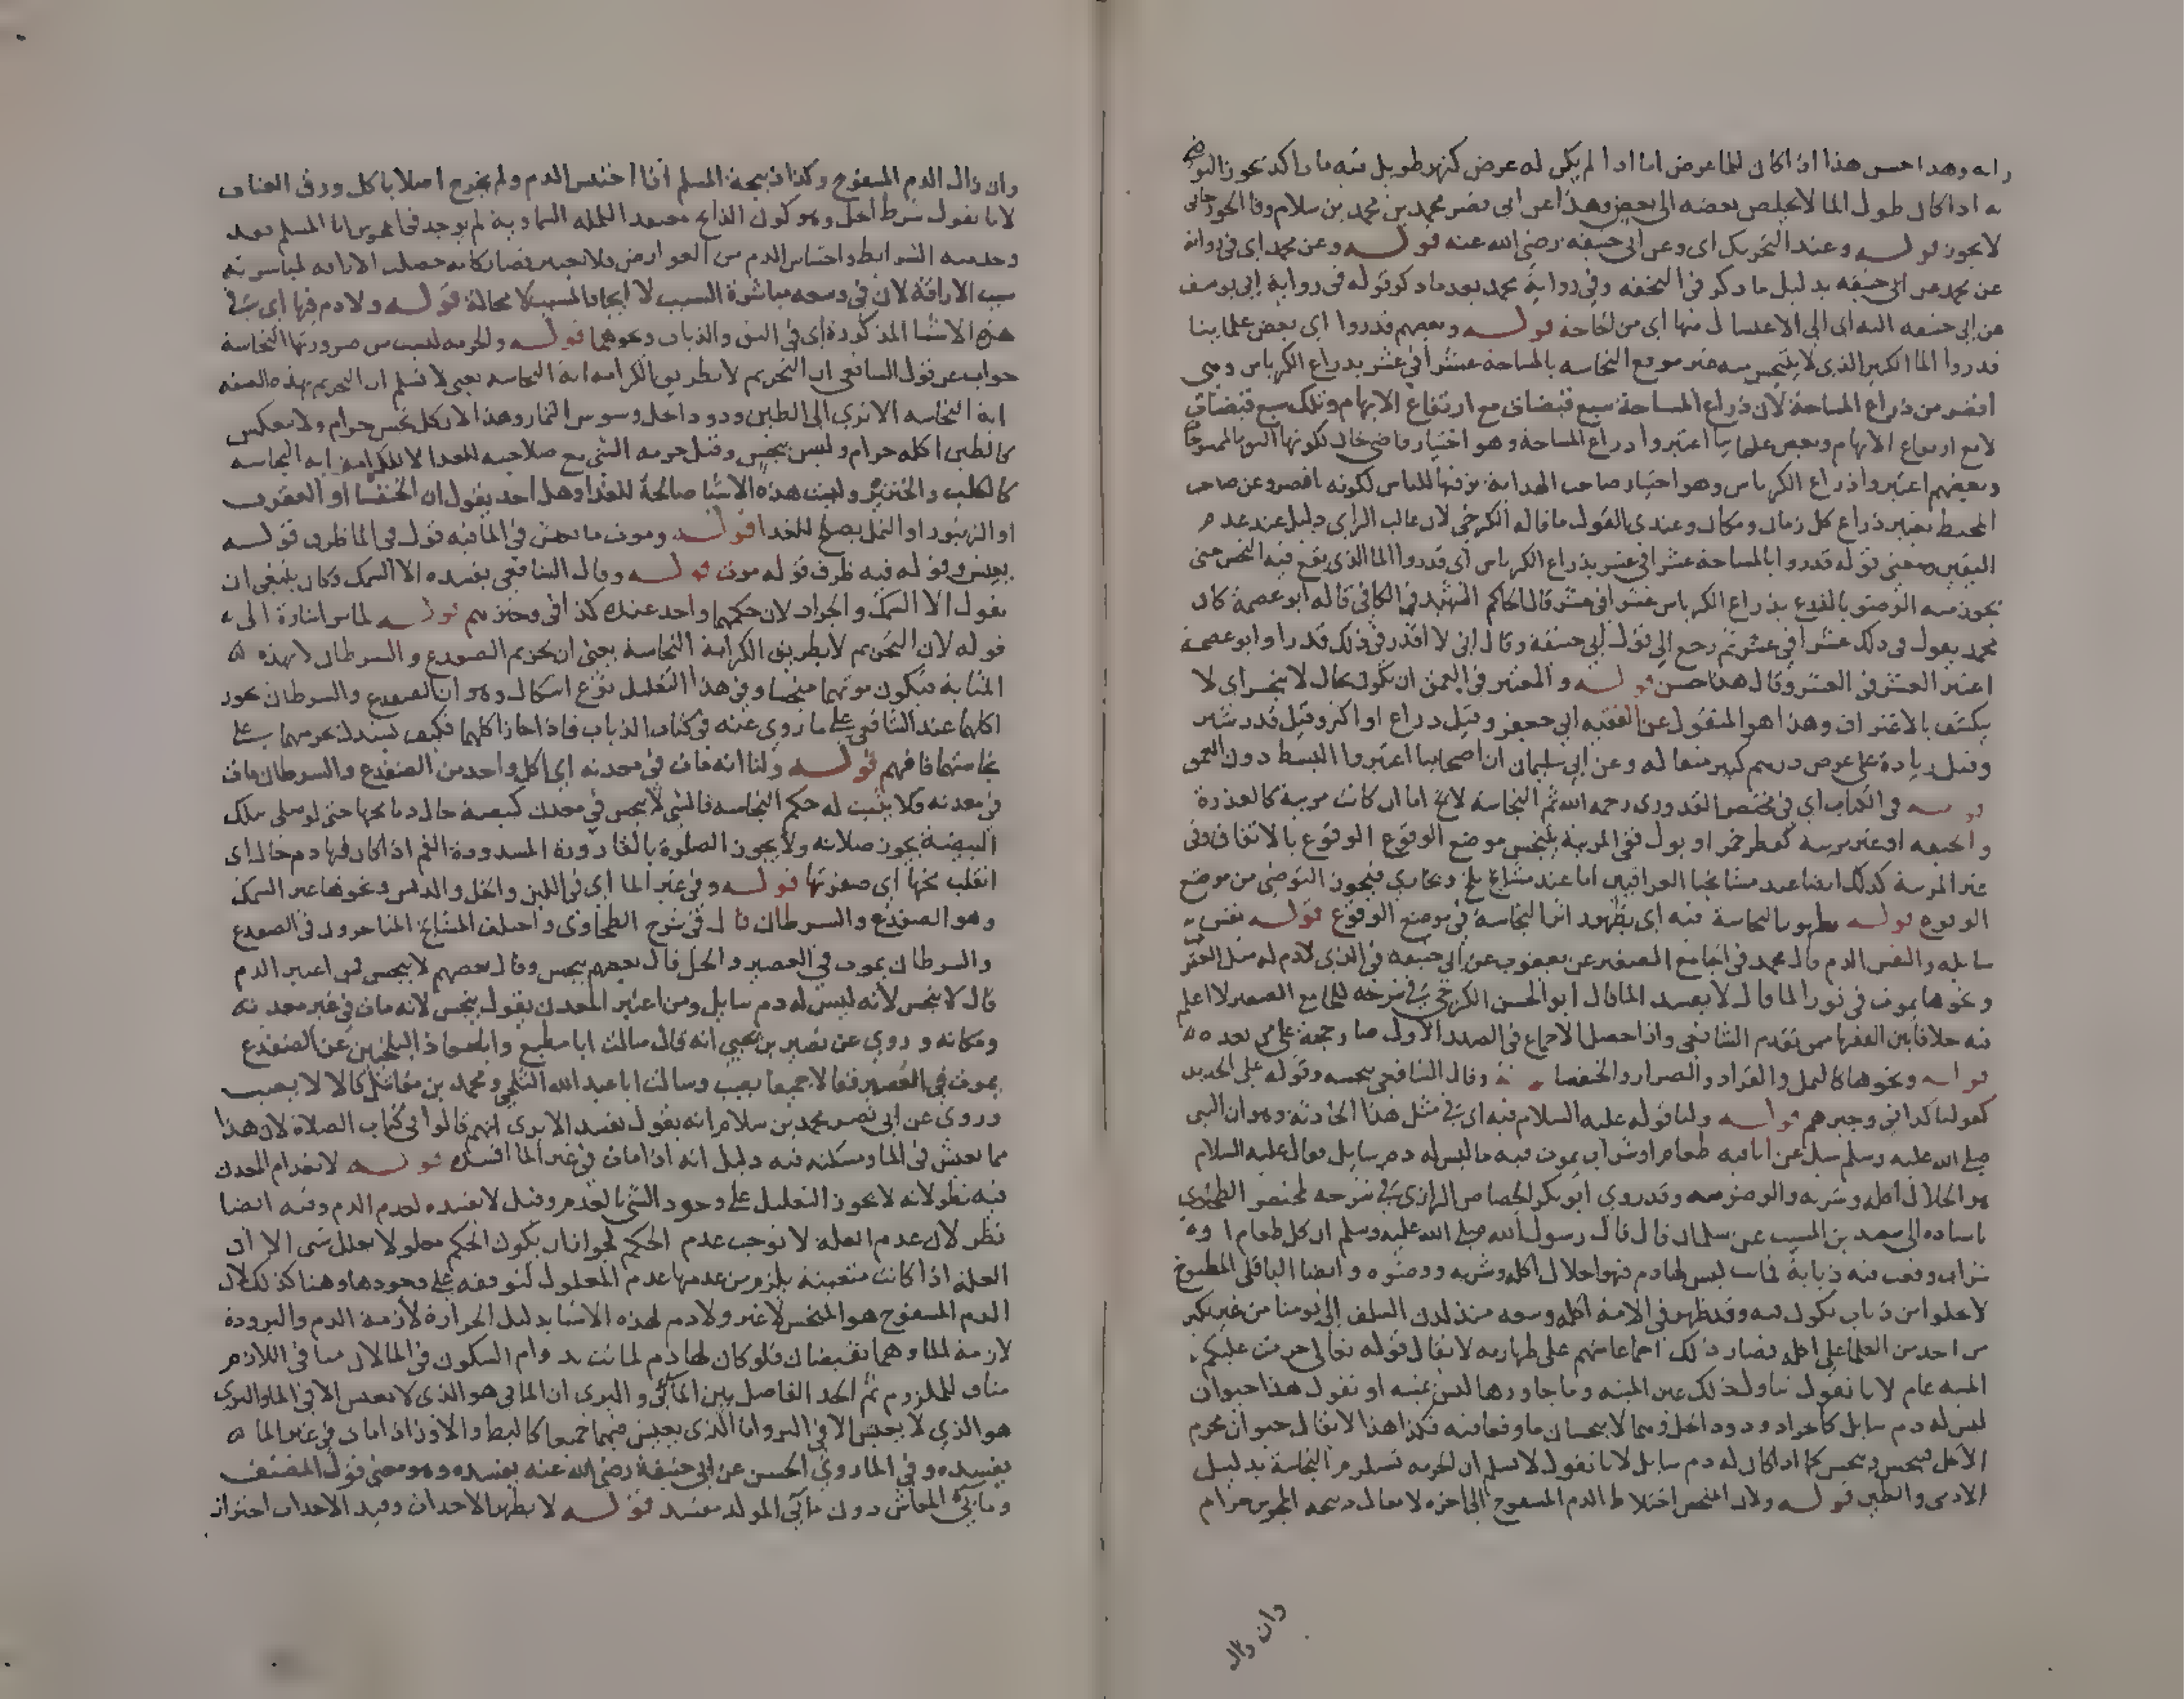 وهذا حسن هذا اذا كان للما عرض اما اذا لم يكن له عرض كنهر طويل فيه ما راكد يجوز التوضي
به اذا كان طول الما لا يخلص بعضه الى بعض وهذا عن ابي نصر محمد بن محمد بن سلام وقال الجوزجاني
لا يجوز قوله وعند التحريك اي وعن ابي حنيفة رضي الله عنه قوله وعن محمد اي في رواية
عن محمد عن ابي حنيفه بدليل ما ذكر في التحفه وفي رواية محمد بعد ما ذكر قوله في رواية ابي يوسف
عن ابي حنيفه اليه اي الى الاغتسال منها اي من الحاجة قوله وبعضهم قدروا اي بعض علماينا
قدروا الما الكثير الذي لا يتنجس منه غير موضع النجاسه بالمساحة عشرا في عشر بذراع الكرباس وهي
اقصر من ذراع المساحة لان ذراع المساحة سبع قبضات مع ارتفاع الابهام وتلك سبع قبضات
لا مع ارتفاع الابهام وبعض علماينا اعتبروا ذراع المساحة وهو اختيار قاضي خان لكونها اليق بالممسوحات
وبعضهم اعتبروا ذراع الكرباس وهو اختيار صاحب الهداية توفيها للناس لكونه اقصر وعن صاحب
المحيط يعتبر ذراع كل زمان ومكان وعندي القول ما قاله الكرخي لان غالب الراي دليل عند عدم
اليقين ومعنى قوله قدروا بالمساحة عشرا في عشر بذراع الكرباس اي قدروا الما الذي يقع فيه النجس حتى
يجوز منه الوضو بالذرع بذراع الكرباس عشرا في عشر قال الحاكم الشهيد في الكافي قاله ابو عصمة كان
محمد يقول في ذلك عشرا في عشر ثم رجع الى قول ابي حنيفة وقال اني لا اقدر في ذلك قدرا وابو عصمة
اعتبر العشر في العشر وقال هذا حسن قوله والمعتبر في العمق ان يكون بحال لا ينحسر اي لا
ينكشف بالاغتراف وهذا هو المنقول عن الفقيه ابي جعفر وقيل ذراع او اكثر وقيل قدر شبر
وقيل زيادة على عرض درهم كبير مثقاله وعن ابي سليمان ان اصحابنا اعتبروا البسط دون العمق
قوله في الكتاب اي في مختصر القدوري رحمه الله ثم النجاسة لا تخ اما ان كانت مريية كالعذرة
والجيفه او غير مريية كقطر خمر او بول ففي المريية يتنجس موضع الوقوع الوقوع بالاتفاق وفي
غير المريية كذلك ايضا عند مشايخنا العراقيين اما عند مشايخ بلخ وبخاري فيجوز التوضي من موضع
الوقوع قوله يظهور النجاسة فيه اي بظهور اثر النجاسة في موضع الوقوع قوله نفس
سايله والنفس الدم قال محمد في الجامع الصغير عن يعقوب عن ابي حنيفه في الذي لا دم له مثل العقر
ونحوها يموت في تور الما قال لا يفسد الما قال ابو الحسن الكرخي في شرحه للجامع الصغير لا اعلم
فيه خلافا بين الفقها ممن تقدم الشافعي واذا حصل الاجماع في الصدر الاول صار حجة على من بعده
قوله ونحوها كالنمل والقراد والصرار والخنفسا وقال الشافعي ينجسه وقوله على الجديد
كقولنا كذا في وجيزهم قوله ولنا قوله عليه السلام فيه اي في مثل هذا الحادثة وهو ان النبي
صلى الله عليه وسلم سئل عن انا فيه طعام او شراب يموت فيه ما ليس له دم سايل فقال عليه السلام
هو الحلال اكله وشربه والوضو منه وقد روي ابو بكر الجصاص الرازي في شرحه لمختصر الطحاوي
باسناده الى سعيد بن المسيب عن سلمان قال قال رسول الله صلى الله عليه وسلم ان كل طعام او
شراب وقعت فيه ذبابة فماتت ليس لها دم فهو احلال اكله وشربه ووضوه وايضا الباقلي المطبوخ
لا يخلوا من ذباب يكون فيه وقد ظهر في الامة اكله وبيعه منذ لدن السلف الى يومنا من غير نكير
من احد من العلما على اكله فصار ذلك اجماعا منهم على طهارته لا يقال قوله تعالى حرمت عليكم
الميتة عام لانا نقول تناول ذلك عين الميتة وما جاورها ليس بميتة او نقول هذا حيوان
ليس له دم سايل كالجراد ودود الخل وهما لا ينجسان ما وقعا فيه فكذا هذا لا يقال حيوان محرم
الاكل فينجس وينجس كما اذا كان له دم سايل لانا نقول لا نسلم ان الحرمه تستلزم النجاسة بدليل
الادمي والطين قوله ولان المنجس اختلاط الدم المسفوح الى اخره لا يقال ذبيحة المجوس حرام
وان زال
وان زال الدم المسفوح وكذا ذبيحة المسلم اذا احتبس الدم ولم يخرج اصلا بان كل ورق العناب
لانا نقول شرط الحل وهو كون الذابح معتقدا للملة السماوية لم يوجد في المجوس اما المسلم فقد
وجد منه الشرايط واحتباس الدم من العوارض فلا يعتبر فصار كانه حصلت الاراقه لمباشرته
سبب الاراقة لان في وسعه مباشرة السبب لا ايجاد المسبب لا محالة قوله ولا دم فيها اي في
هذه الاشيا المذكورة اي في البق والذباب ونحوهما قوله والحرمه ليست من ضرورتها النجاسة
جواب عن قول الشافعي ان التحريم لا بطريق الكرامه اية النجاسه يعني لا نسلم ان التحريم بهذه الصفه
اية النجاسه الا ترى الى الطين ودود الخل وسوس الثمار وهذا لان كل نجس حرام ولا ينعكس
كالطين اكله حرام وليس بنجس وقيل حرمه الشي مع صلاحيته للغذا لا للكرامه اية النجاسه
كالكلب والخنزير وليست هذه الاشيا صالحة للغذا وهل احد يقول ان الخنفسا او العقرب
او الزنبور او النمل يصلح للغذا قوله وموت ما يعيش في الما فيه قوله في الما ظرف قوله
يعيش وقوله فيه ظرف قوله موت قوله وقال الشافعي يفسده الا السمك وكان ينبغي ان
يقول الا السمك والجراد لان حكمهما واحد عنده كذا في وجيزهم قوله لما مر اشارة الى
قوله لان التحريم لا بطريق الكرامة اية النجاسة يعني ان تحريم الضفدع والسرطان لا بهذه
المثابة فيكون موتهما منجسا وفي هذا التعليل نوع اشكال وهو ان الضفدع والسرطان يجوز
اكلهما عند الشافعي على ما روي عنه في كتاب الذباب فاذا جاز اكلهما فكيف يستدل بحرمتهما على
نجاستهما فافهم قوله ولنا انه مات في معدنه اي كل واحد من الضفدع والسرطان مات
في معدنه فلا يثبت له حكم النجاسه فالشي لا ينجس في معدنه كبيضة حال دما محها حتى لو صلى بتلك
البيضة يجوز صلاته ولا يجوز الصلوة بالقارورة المسدودة الفم اذا كان فيها دم حال اي
انقلب محها اي صفرتها قوله وفي غير الما اي في اللبن والخل والدبس ونحوها غير السمك
وهو الضفدع والسرطان قال في شرح الطحاوي واختلف المشايخ المتاخرون في الضفدع
والسرطان يموت في العصير والخل قال بعضهم ينجس وقال بعضهم لا ينجس فمن اعتبر الدم
قال لا ينجس لانه ليس له دم سايل ومن اعتبر المعدن يقول ينجس لانه مات في غير معدنه
ومكانه وروي عن نصير بن يحيى انه قال سالت ابا مطيع وابا معاذ البلخيين عن الضفدع
يموت في العصير فقالا جميعا يصب وسالت ابا عبد الله الثلجي ومحمد بن مقاتل قالا لا يصب
وروي عن ابي نصر محمد بن سلام انه يقول يفسد الا يرى انهم قالوا في كتاب الصلاة لان هذا
مما يعيش في الما ومسكنه فيه دليل انه اذا مات في غير الما افسده قوله لانعدام المعدن
فيه نظر لانه لا يجوز التعليل على وجود الشي بالعدم وقيل لا يفسده لعدم الدم وفيه ايضا
نظر لان عدم العله لا يوجب عدم الحكم لجواز ان يكون الحكم معلولا بعلل شتى الا ان
العلة اذا كانت متعينة يلزم من عدمها عدم المعلول لتوقفه على وجودها وهنا كذلك لان
الدم المسفوح هو المنجس لا غير ولا دم لهذه الاشيا بدليل الحرارة لازمة الدم والبرودة
لازمة للما وهما نقيضان فلو كان لها دم لما ثبت دوام السكون في الما لان منافي اللازم
مناف للملزوم ثم الحد الفاصل بين المائي والبري ان المائي هو الذي لا يعيش الا في الما والبري
هو الذي لا يعيش الا في البر واما الذي يعيش فيهما جميعا كالبط والاوز اذا مات في غير الما
يفسده وفي الما روي الحسن عن ابي حنيفة رضي الله عنه يفسده وهو معنى قول المصنف
ومائي المعاش دون مائي المولد مفسد قوله لا يطهر الاحداث وقيد الاحداث احتراز